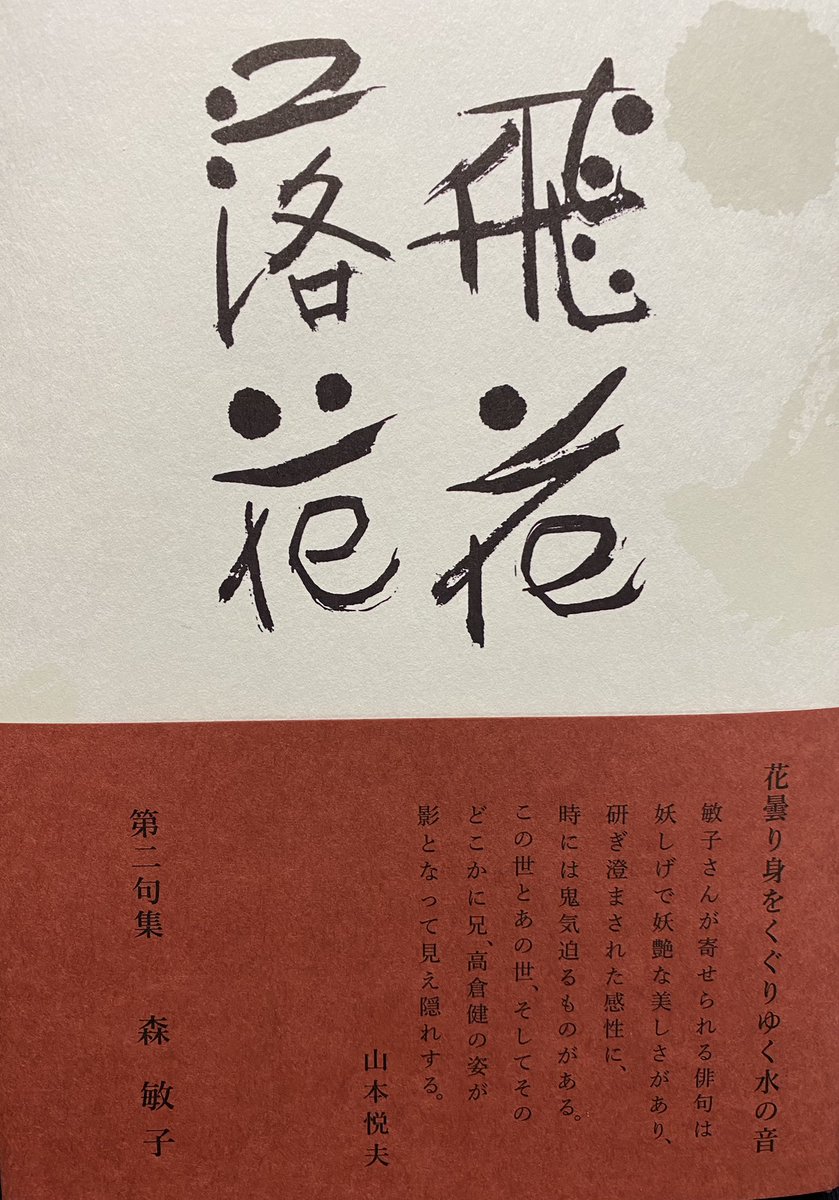 飛花
落花
花曇り身をくぐりゆく水の音
敏子さんが寄せられる俳句は
妖しげで妖艶な美しさがあり、
研ぎ澄まされた感性に、
時には鬼気迫るものがある。
この世とあの世、そしてその
どこかに兄、高倉健の姿が
影となって見え隠れする。
山本悦夫
第二句集 森 敏子